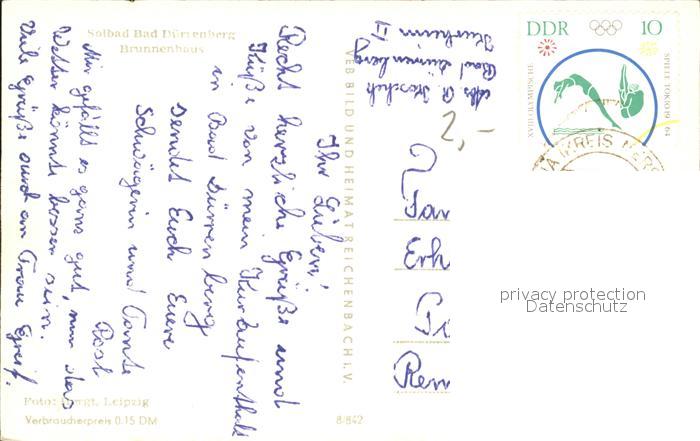 Solbad Bad Dürrenberg
Brunnenhaus
Ihr Lieben!
Recht herzliche Grüße und
Küße von mein Kuraufenthalt
in Bad Dürrenberg
sendet Euch Eure
Schwägerin und Tante
Rosl
Mir gefällt es ganz gut, nur das
Wetter könnte besser sein.
Viele Grüße auch an Frau Greif.
Foto: Leipzig
Verbraucherpreis 0.15 DM
8/842
VEB BILD UND HEIMAT REICHENBACH i. V.
Abs.
Bad Dürrenberg
Kurheim II
2,-
Erh
Ren
DDR 10
XVIII. OLYMPISCHE
SPIELE TOKIO 1964
KREIS MERS
privacy protection
Datenschutz